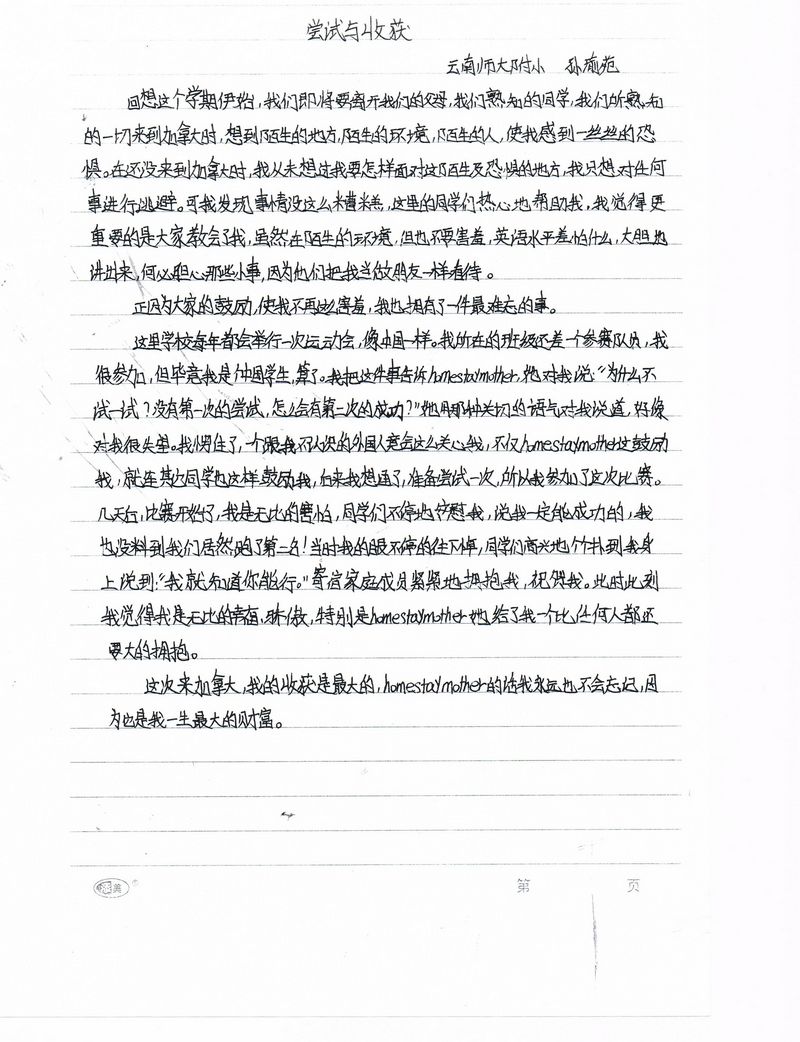 尝试与收获
云南师大附小 孙瑜苑
回想这个学期伊始，我们即将要离开我们的父母，我们熟知的同学，我们所熟知
的一切来到加拿大时，想到陌生的地方，陌生的环境，陌生的人，使我感到一丝丝的恐
惧。在还没来到加拿大时，我从未想过我要怎样面对这陌生及恐惧的地方，我只想对任何
事进行逃避。可我发现事情没这么糟糕，这里的同学们热心地帮助我，我觉得更
重要的是大家教会了我，虽然在陌生的环境，但也不要害羞，英语水平差怕什么，大胆地
讲出来，何必担心那些小事，因为他们把我当做朋友一样看待。
正因为大家的鼓励，使我不再这么害羞，我也拥有了一件最难忘的事。
这里学校每年都会举行一次运动会，像中国一样。我所在的班级还差一个参赛队员，我
很参加，但毕竟我是个中国学生，算了。我把这件事告诉homestaymother，她对我说：“为什么不
试一试？没有第一次的尝试，怎么会有第二次的成功？”她用那种关切的语气对我说道，好像
对我很失望。我愣住了，一个跟我不认识的外国人竟会这么关心我，不仅homestaymother这鼓励
我，就连其达同学也这样鼓励我，后来我想通了，准备尝试一次，所以我参加了这次比赛。
几天后，比赛开始了，我是无比的害怕，同学们不停地安慰我，说我一定能成功的，我
也没料到我们居然跑了第二名！当时我的眼不停的往下掉，同学们高兴地个个扑到我身
上说到：“我就知道你能行。”寄宿家庭成员紧紧地拥抱我，祝贺我。此时此刻
我觉得我是无比的幸福、骄傲，特别是homestaymother她给了我一个比任何人都还
要大的拥抱。
这次来加拿大，我的收获是最大的，homestaymother的话我永远也不会忘记，因
为它是我一生最大的财富。
第 页